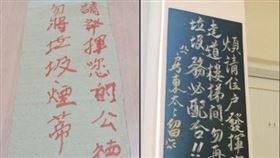 請發揮您的公德
勿將垃圾煙蒂
煩請住戶發揮
走道樓梯間勿再
垃圾務必配合!!
房東太太留